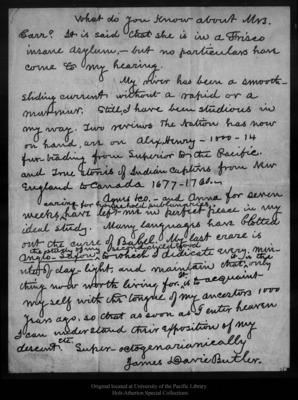 What do you know about Mrs.
Carr? It is said that she is in a Frisco
insane asylum, - but no particulars have
come to my hearing.
My river has been a smooth-
sliding current without a rapid or a
murmur. Still, I have been studious in
my way. Two reviews The Nation has now
on hand, are on Alex. Henry - 1800-14
fur trading from Superior to the Pacific.
and True Stories of Indian Captives from New
England to Canada 1677-17
Agnes &co. - and Anna for seven
caring for
weeks, have left me in perfect peace in my
ideal study. Many languages have blotted
out the curse of Babel. My last craze is
the study of my
Anglo-Saxon, to which I dedicate every min-
ute of day-light, and maintain that it is the only
thing now worth living for, is to acquaint
myself with the tongue of my ancestors 1000
years ago, so that as soon as I enter heaven
I can understand their exposition of my
descent, etc. Super-octogenarianically
James Davie Butler.
Original located at University of the Pacific Library
Holt-Atherton Special Collections